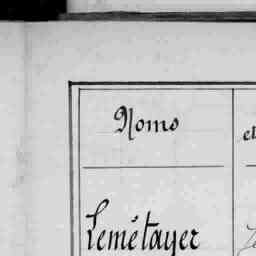 Noms
et
Lemétayer